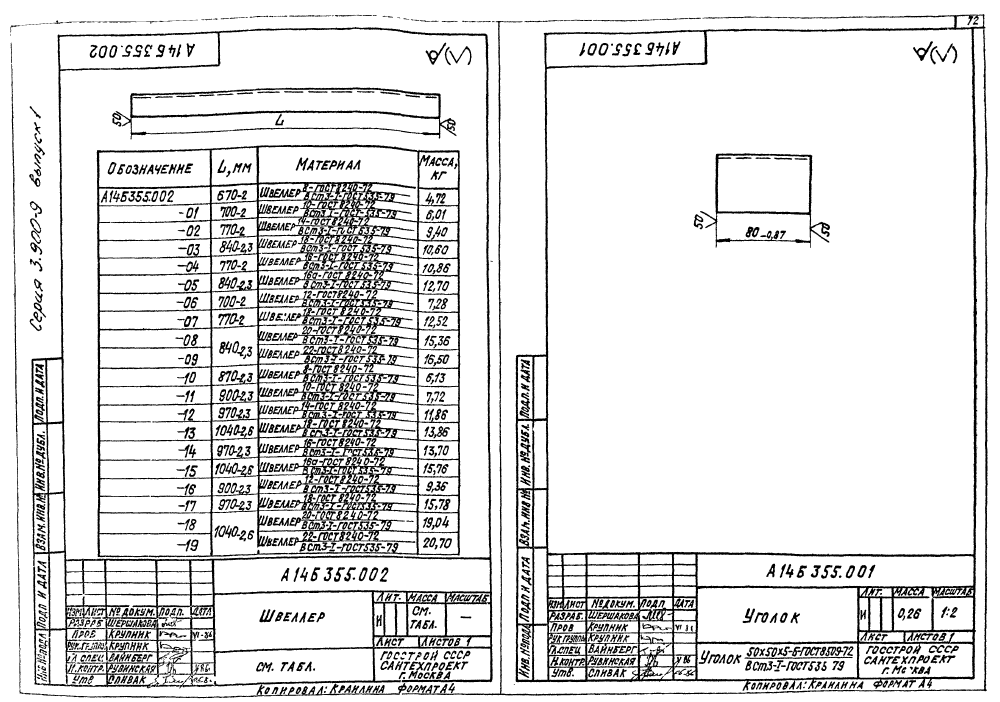 72
А14Б355.002
√(√)
50
L
50
Обозначение L, мм Материал Масса, кг
А14Б355.002 670-2 Швеллер 8-ГОСТ 8240-72 ВСт3-I-ГОСТ 535-79 4,72
-01 700-2 Швеллер 10-ГОСТ 8240-72 ВСт3-I-ГОСТ 535-79 6,01
-02 770-2 Швеллер 14-ГОСТ 8240-72 ВСт3-I-ГОСТ 535-79 9,40
-03 840-2,3 Швеллер ГОСТ 8240-72 ВСт3-I-ГОСТ 535-79 10,60
-04 770-2 Швеллер 16-ГОСТ 8240-72 ВСт3-I-ГОСТ 535-79 10,86
-05 840-2,3 Швеллер 16а-ГОСТ 8240-72 ВСт3-I-ГОСТ 535-79 12,70
-06 700-2 Швеллер 12-ГОСТ 8240-72 ВСт3-I-ГОСТ 535-79 7,28
-07 770-2 Швеллер 18-ГОСТ 8240-72 ВСт3-I-ГОСТ 535-79 12,52
-08 840-2,3 Швеллер 20-ГОСТ 8240-72 ВСт3-I-ГОСТ 535-79 15,36
-09 Швеллер 22-ГОСТ 8240-72 ВСт3-I-ГОСТ 535-79 16,50
-10 870-2,3 Швеллер 8-ГОСТ 8240-72 ВСт3-I-ГОСТ 535-79 6,13
-11 900-2,3 Швеллер 10-ГОСТ 8240-72 ВСт3-I-ГОСТ 535-79 7,72
-12 970-2,3 Швеллер 14-ГОСТ 8240-72 ВСт3-I-ГОСТ 535-79 11,86
-13 1040-2,6 Швеллер ГОСТ 8240-72 ВСт3-I-ГОСТ 535-79 13,86
-14 970-2,3 Швеллер 16-ГОСТ 8240-72 ВСт3-I-ГОСТ 535-79 13,70
-15 1040-2,6 Швеллер 16а-ГОСТ 8240-72 ВСт3-I-ГОСТ 535-79 15,76
-16 900-2,3 Швеллер 12-ГОСТ 8240-72 ВСт3-I-ГОСТ 535-79 9,36
-17 970-2,3 Швеллер 18-ГОСТ 8240-72 ВСт3-I-ГОСТ 535-79 15,78
-18 1040-2,6 Швеллер 20-ГОСТ 8240-72 ВСт3-I-ГОСТ 535-79 19,04
-19 Швеллер 22-ГОСТ 8240-72 ВСт3-I-ГОСТ 535-79 20,70
Серия 3.900-9 выпуск 1
Инв.№ подл. Подп. и дата Взам. инв.№ Инв.№ дубл. Подп. и дата
А14Б355.002
Изм Лист № докум. Подп. Дата
Разраб. Шершакова
Пров. Крупник
Рук.группы Крупник
Гл.спец. Вайнберг
Н.контр. Рувинская
Утв. Спивак
Швеллер
Лит. Масса Масштаб
И см. табл. —
Лист Листов 1
см. табл.
Госстрой СССР
Сантехпроект
г. Москва
Копировал: Кранлина Формат А4
А14Б355.001
√(√)
50
80-0,87
50
Инв.№ подл. Подп. и дата Взам. инв.№ Инв.№ дубл. Подп. и дата
А14Б355.001
Изм Лист № докум. Подп. Дата
Разраб. Шершакова
Пров. Крупник
Рук.группы Крупник
Гл.спец. Вайнберг
Н.контр. Рувинская
Утв. Спивак
Уголок
Лит. Масса Масштаб
И 0,26 1:2
Лист Листов 1
Уголок 50х50х5-Б-ГОСТ 8509-72
ВСт3-I-ГОСТ 535 79
Госстрой СССР
Сантехпроект
г. Москва
Копировал: Кранлина Формат А4